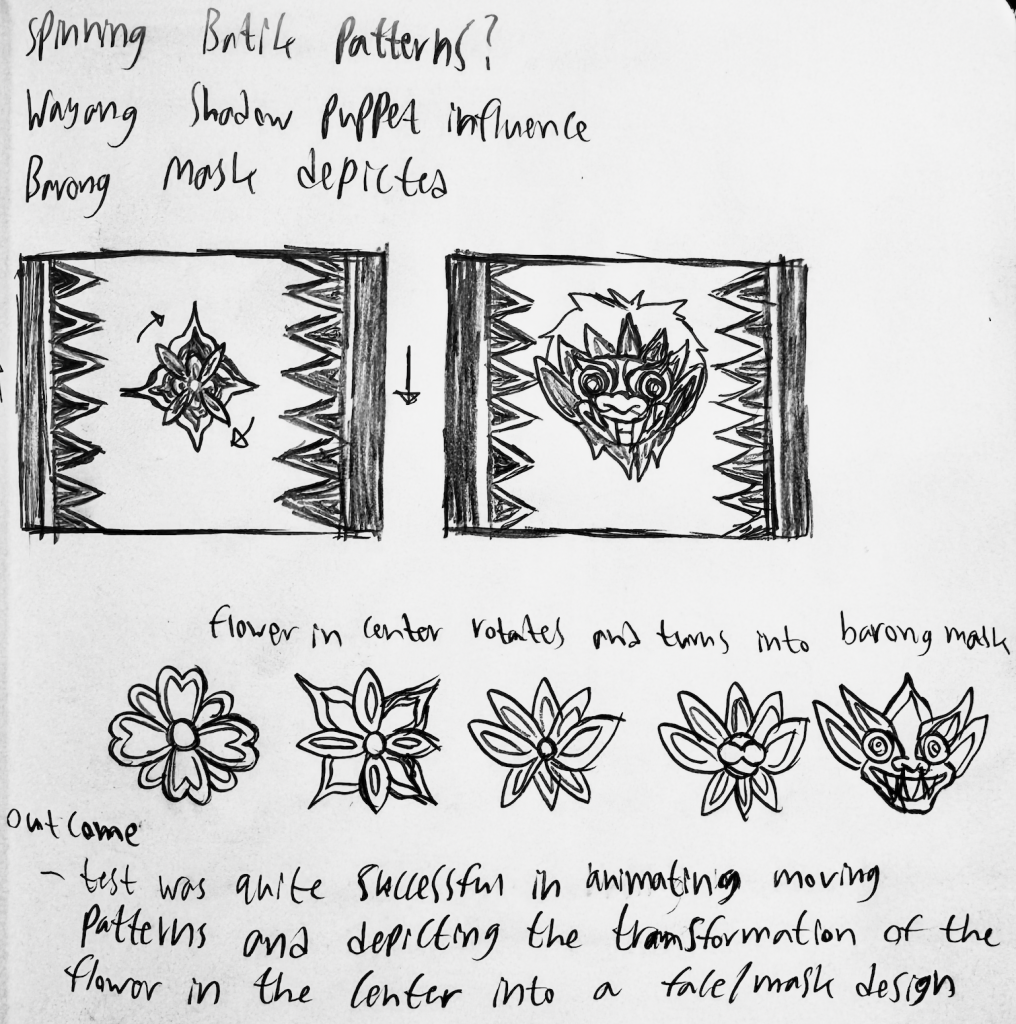 Spinning Batik Patterns?
Wayang Shadow puppet influence
Barong mask depicted
flower in center rotates and turns into barong mask
outcome
- test was quite successful in animating moving
patterns and depicting the transformation of the
flower in the center into a face/mask design